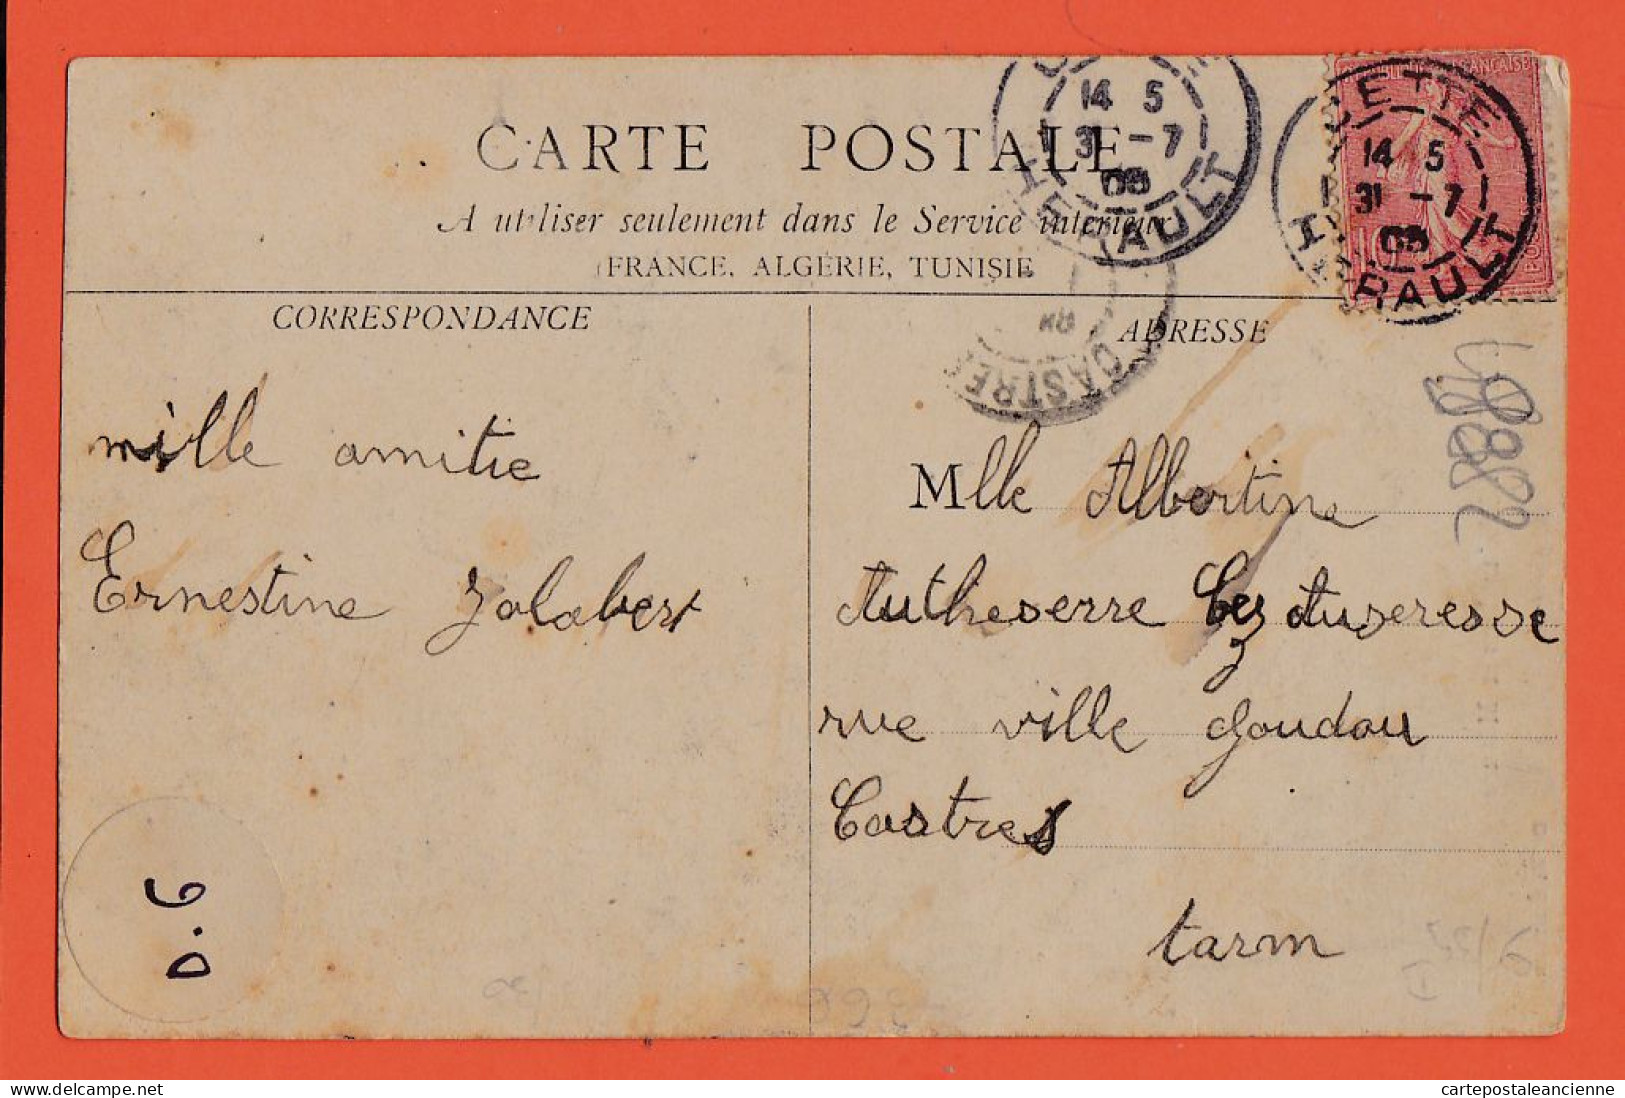 CARTE POSTALE
A utiliser seulement dans le Service intérieur
(FRANCE, ALGÉRIE, TUNISIE
CETTE
14 5
31 -7
HERAULT
14 5
31 -7
HERAULT
RÉPUBLIQUE FRANÇAISE
CASTRES
CORRESPONDANCE
ADRESSE
mille amitie
Ernestine Jalabert
Mlle Albertine
Autheserre Cez Auseresse
rue ville Goudou
Castres
tarn
D.G
cartepostaleancienne